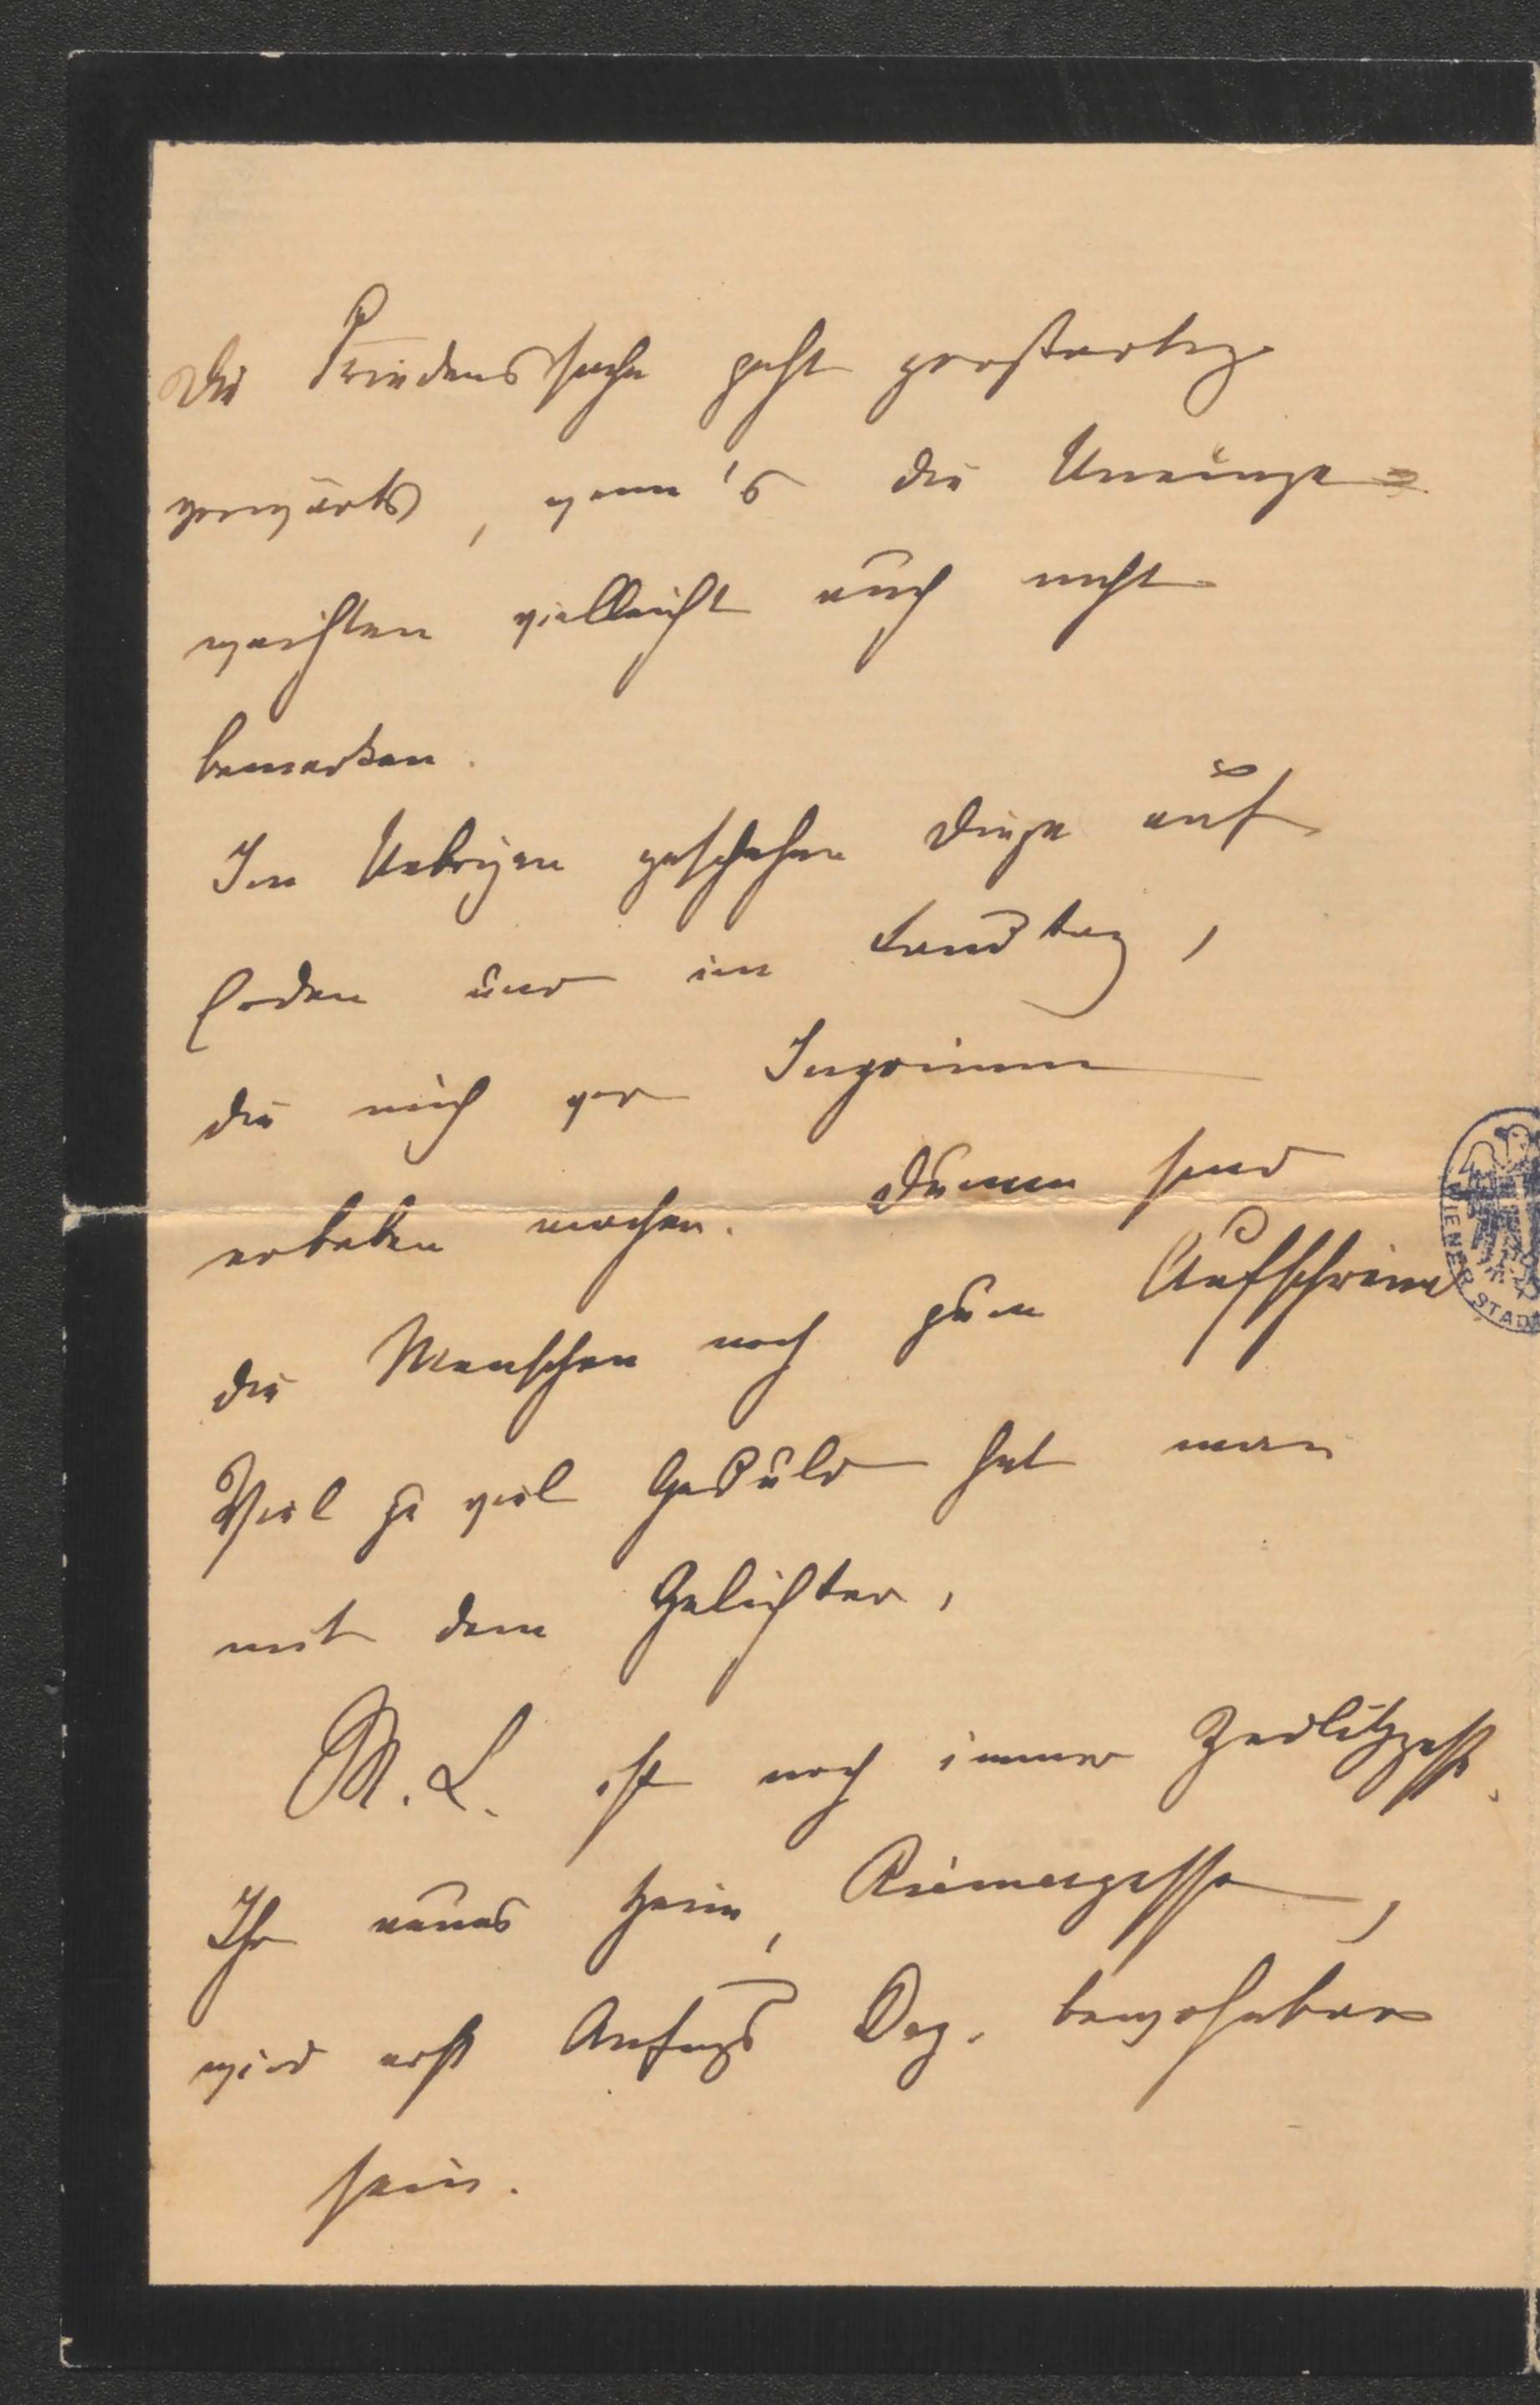 Die Friedenssache geht großartig
vorwärts, wenn's die Uneinge=
weihten vielleicht auch nicht
bemerken.
Im Uebrigen geschehen Dinge auf
Erden und im Landtag,
die mich vor Ingrimm
erbeben machen. Dumm sind
die Menschen noch zum Aufschreien
Viel zu viel Geduld hat man
mit dem Gelichter,
M. L. ist noch immer Zedlitzgasse.
Ihr neues Heim, Riemergasse,
wird erst Anfangs Dez. bewohnbar
sein.
WIENER STAD